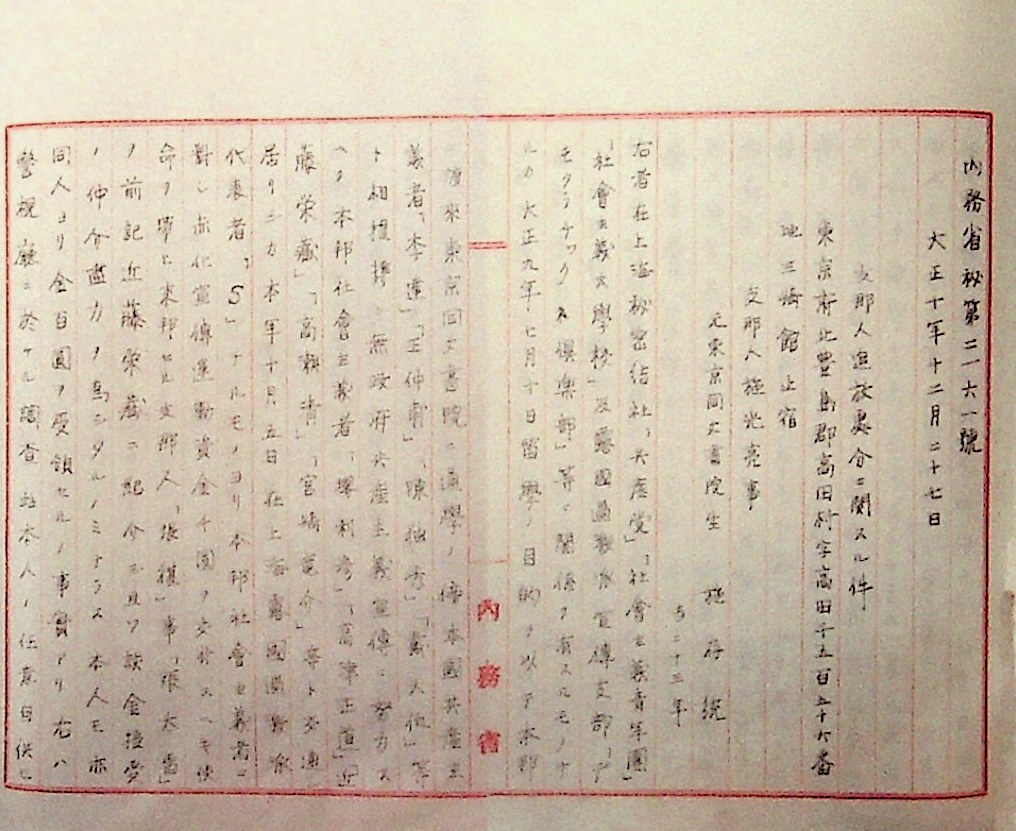 内務省秘第二六一號
大正十年十二月二十七日
支那人追放處分ニ関スル件
東京府北豊島郡高田村字高田千五百五十六番
地三崎館止宿
支那人施光亮事
元東京同文書院生 施存統
当二十三年
右者在上海秘密結社「共産党」「社會主義青年團」
「社會主義大學校」及露國過激派宣傳支部「デ
モクラチックス倶楽部」等ニ関係ヲ有スルモノナ
ルカ大正九年七月十日留學ノ目的ヲ以テ本邦
ニ渡来東京同文書院ニ通學ノ傍本國共産主
義者「李達」「王仲甫」「陳独秀」「戴天仇」等
ト相提携シ無政府共産主義宣傳ニ努力ス
ヘク本邦社會主義者「堺利彦」「高津正道」「近
藤栄蔵」「高瀬清」「宮崎竜介」等ト交通シ
居リシカ本年十月五日在上海露國過激派
代表者「S」ナルモノヨリ本邦社會主義者ニ
對シ赤化宣傳運動資金千圓ヲ交付スヘキ使
命ヲ帯ヒ来邦セル支那人「張樸」事「張太雷」
ヲ前記近藤栄蔵ニ紹介シ且ツ該金種受
ノ仲介盡力ノ為シタルノミナラス本人モ亦
同人ヨリ金百圓ヲ受領セルノ事實アリ右ハ
警視廳ニ於ケル調査並本人ノ任意自供ニ
内務省